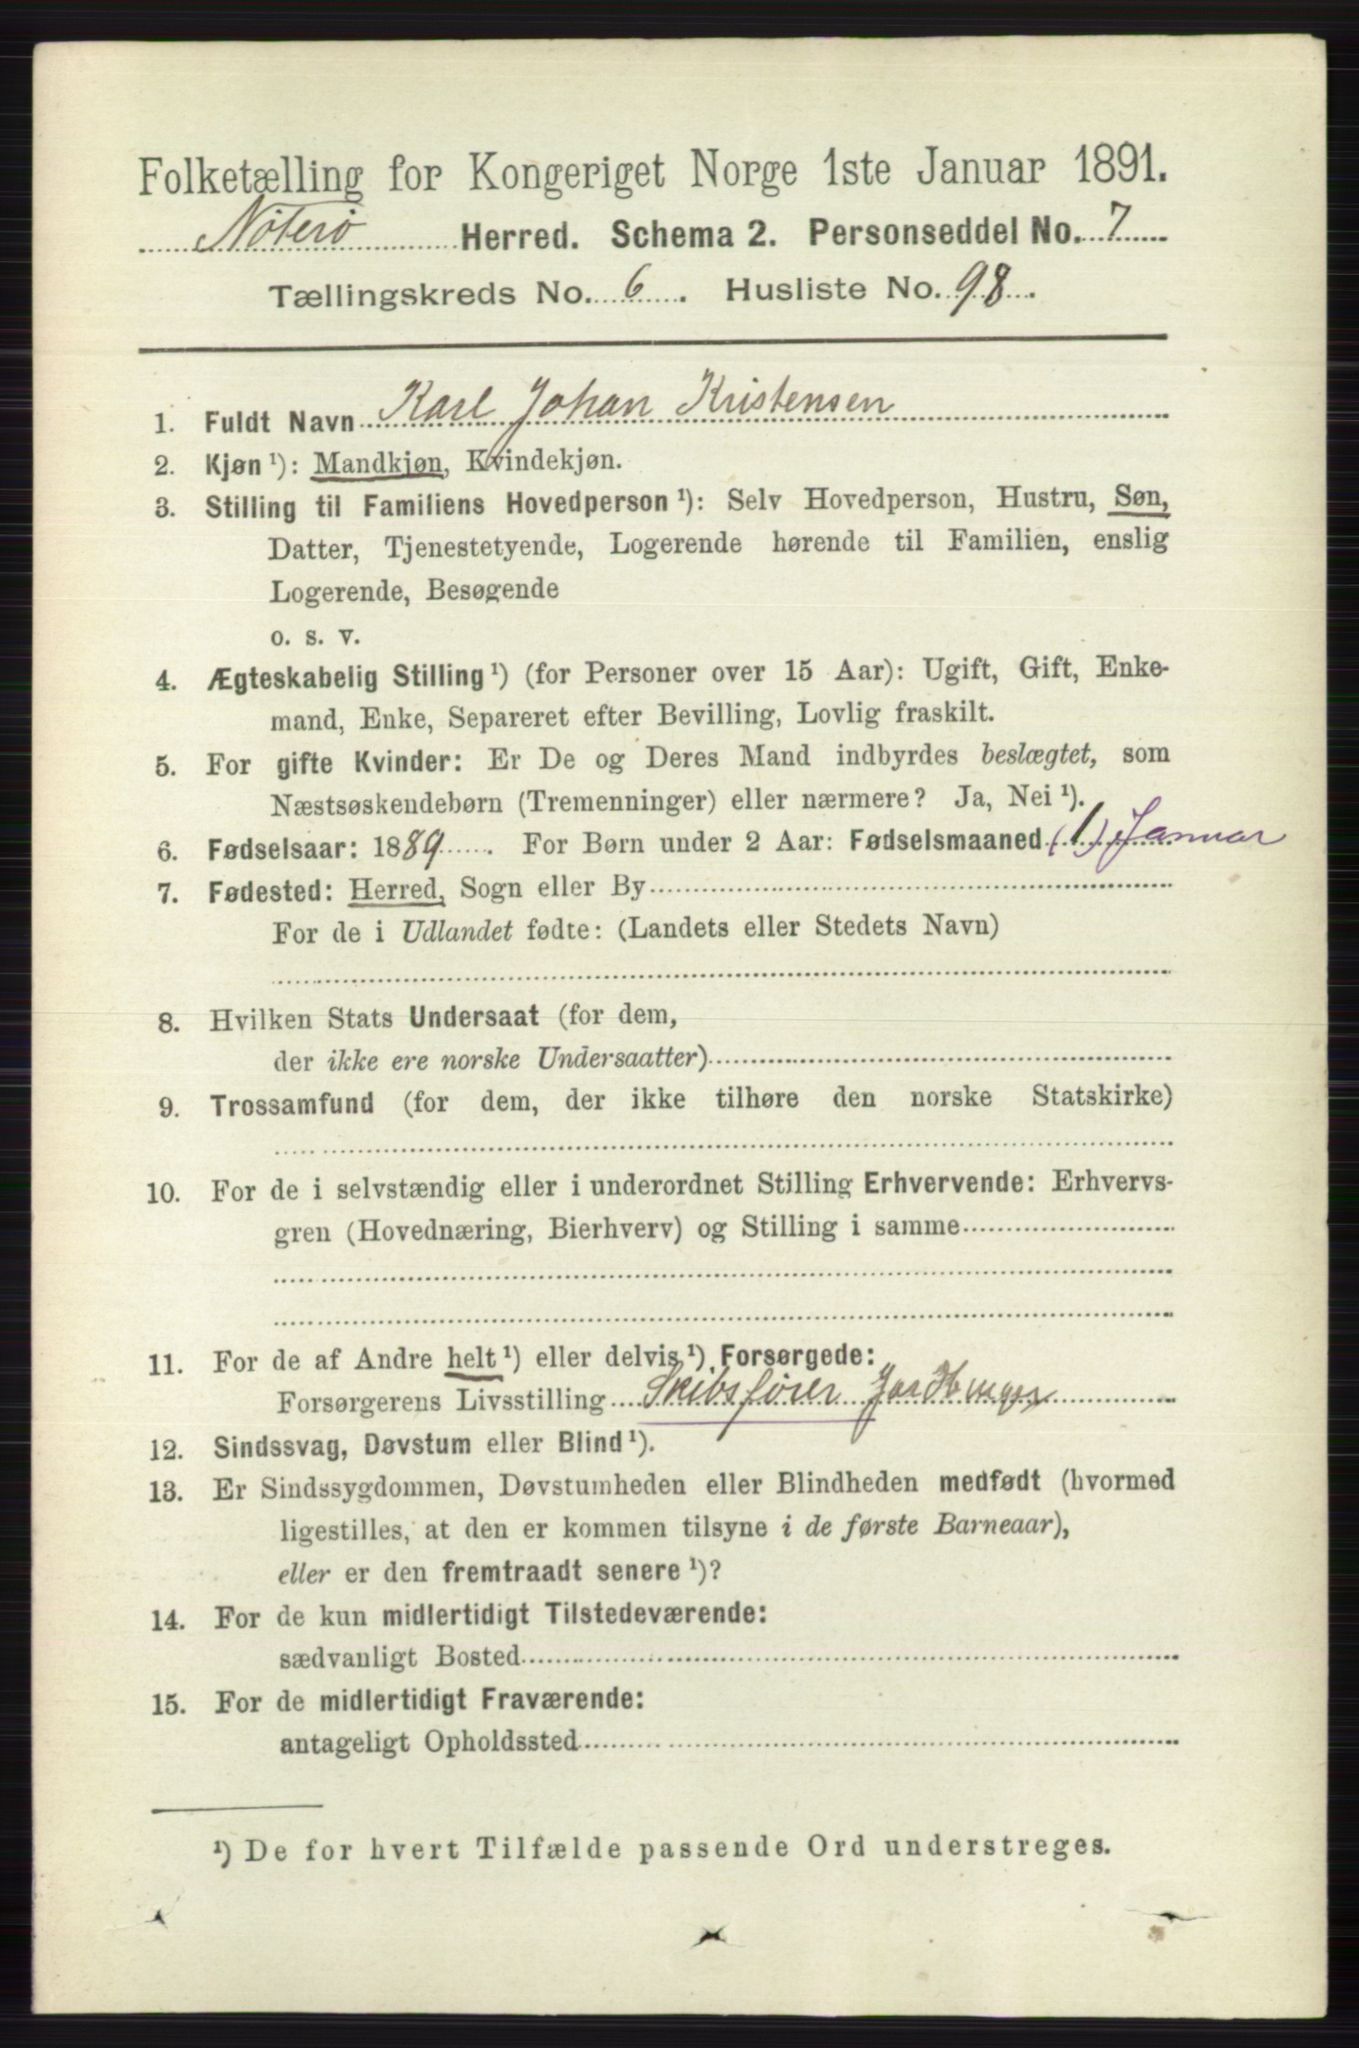 Folketælling for Kongeriget Norge 1ste Januar 1891.
Nøterø Herred. Schema 2. Personseddel No. 7
Tællingskreds No. 6. Husliste No. 98.
1. Fuldt Navn Karl Johan Kristensen
2. Kjøn ¹): Mandkjøn, Kvindekjøn.
3. Stilling til Familiens Hovedperson ¹): Selv Hovedperson, Hustru, Søn,
Datter, Tjenestetyende, Logerende hørende til Familien, enslig
Logerende, Besøgende
o. s. v.
4. Ægteskabelig Stilling ¹) (for Personer over 15 Aar): Ugift, Gift, Enke-
mand, Enke, Separeret efter Bevilling, Lovlig fraskilt.
5. For gifte Kvinder: Er De og Deres Mand indbyrdes beslægtet, som
Næstsøskendebørn (Tremenninger) eller nærmere? Ja, Nei ¹).
6. Fødselsaar: 1889. For Børn under 2 Aar: Fødselsmaaned (1) Januar
7. Fødested: Herred, Sogn eller By
For de i Udlandet fødte: (Landets eller Stedets Navn)
8. Hvilken Stats Undersaat (for dem,
der ikke ere norske Undersaatter)
9. Trossamfund (for dem, der ikke tilhøre den norske Statskirke)
10. For de i selvstændig eller i underordnet Stilling Erhvervende: Erhvervs-
gren (Hovednæring, Bierhverv) og Stilling i samme
11. For de af Andre helt ¹) eller delvis ¹) Forsørgede:
Forsørgerens Livsstilling Skibsfører
12. Sindssvag, Døvstum eller Blind ¹).
13. Er Sindssygdommen, Døvstumheden eller Blindheden medfødt (hvormed
ligestilles, at den er kommen tilsyne i de første Barneaar),
eller er den fremtraadt senere ¹)?
14. For de kun midlertidigt Tilstedeværende:
sædvanligt Bosted
15. For de midlertidigt Fraværende:
antageligt Opholdssted
¹) De for hvert Tilfælde passende Ord understreges.